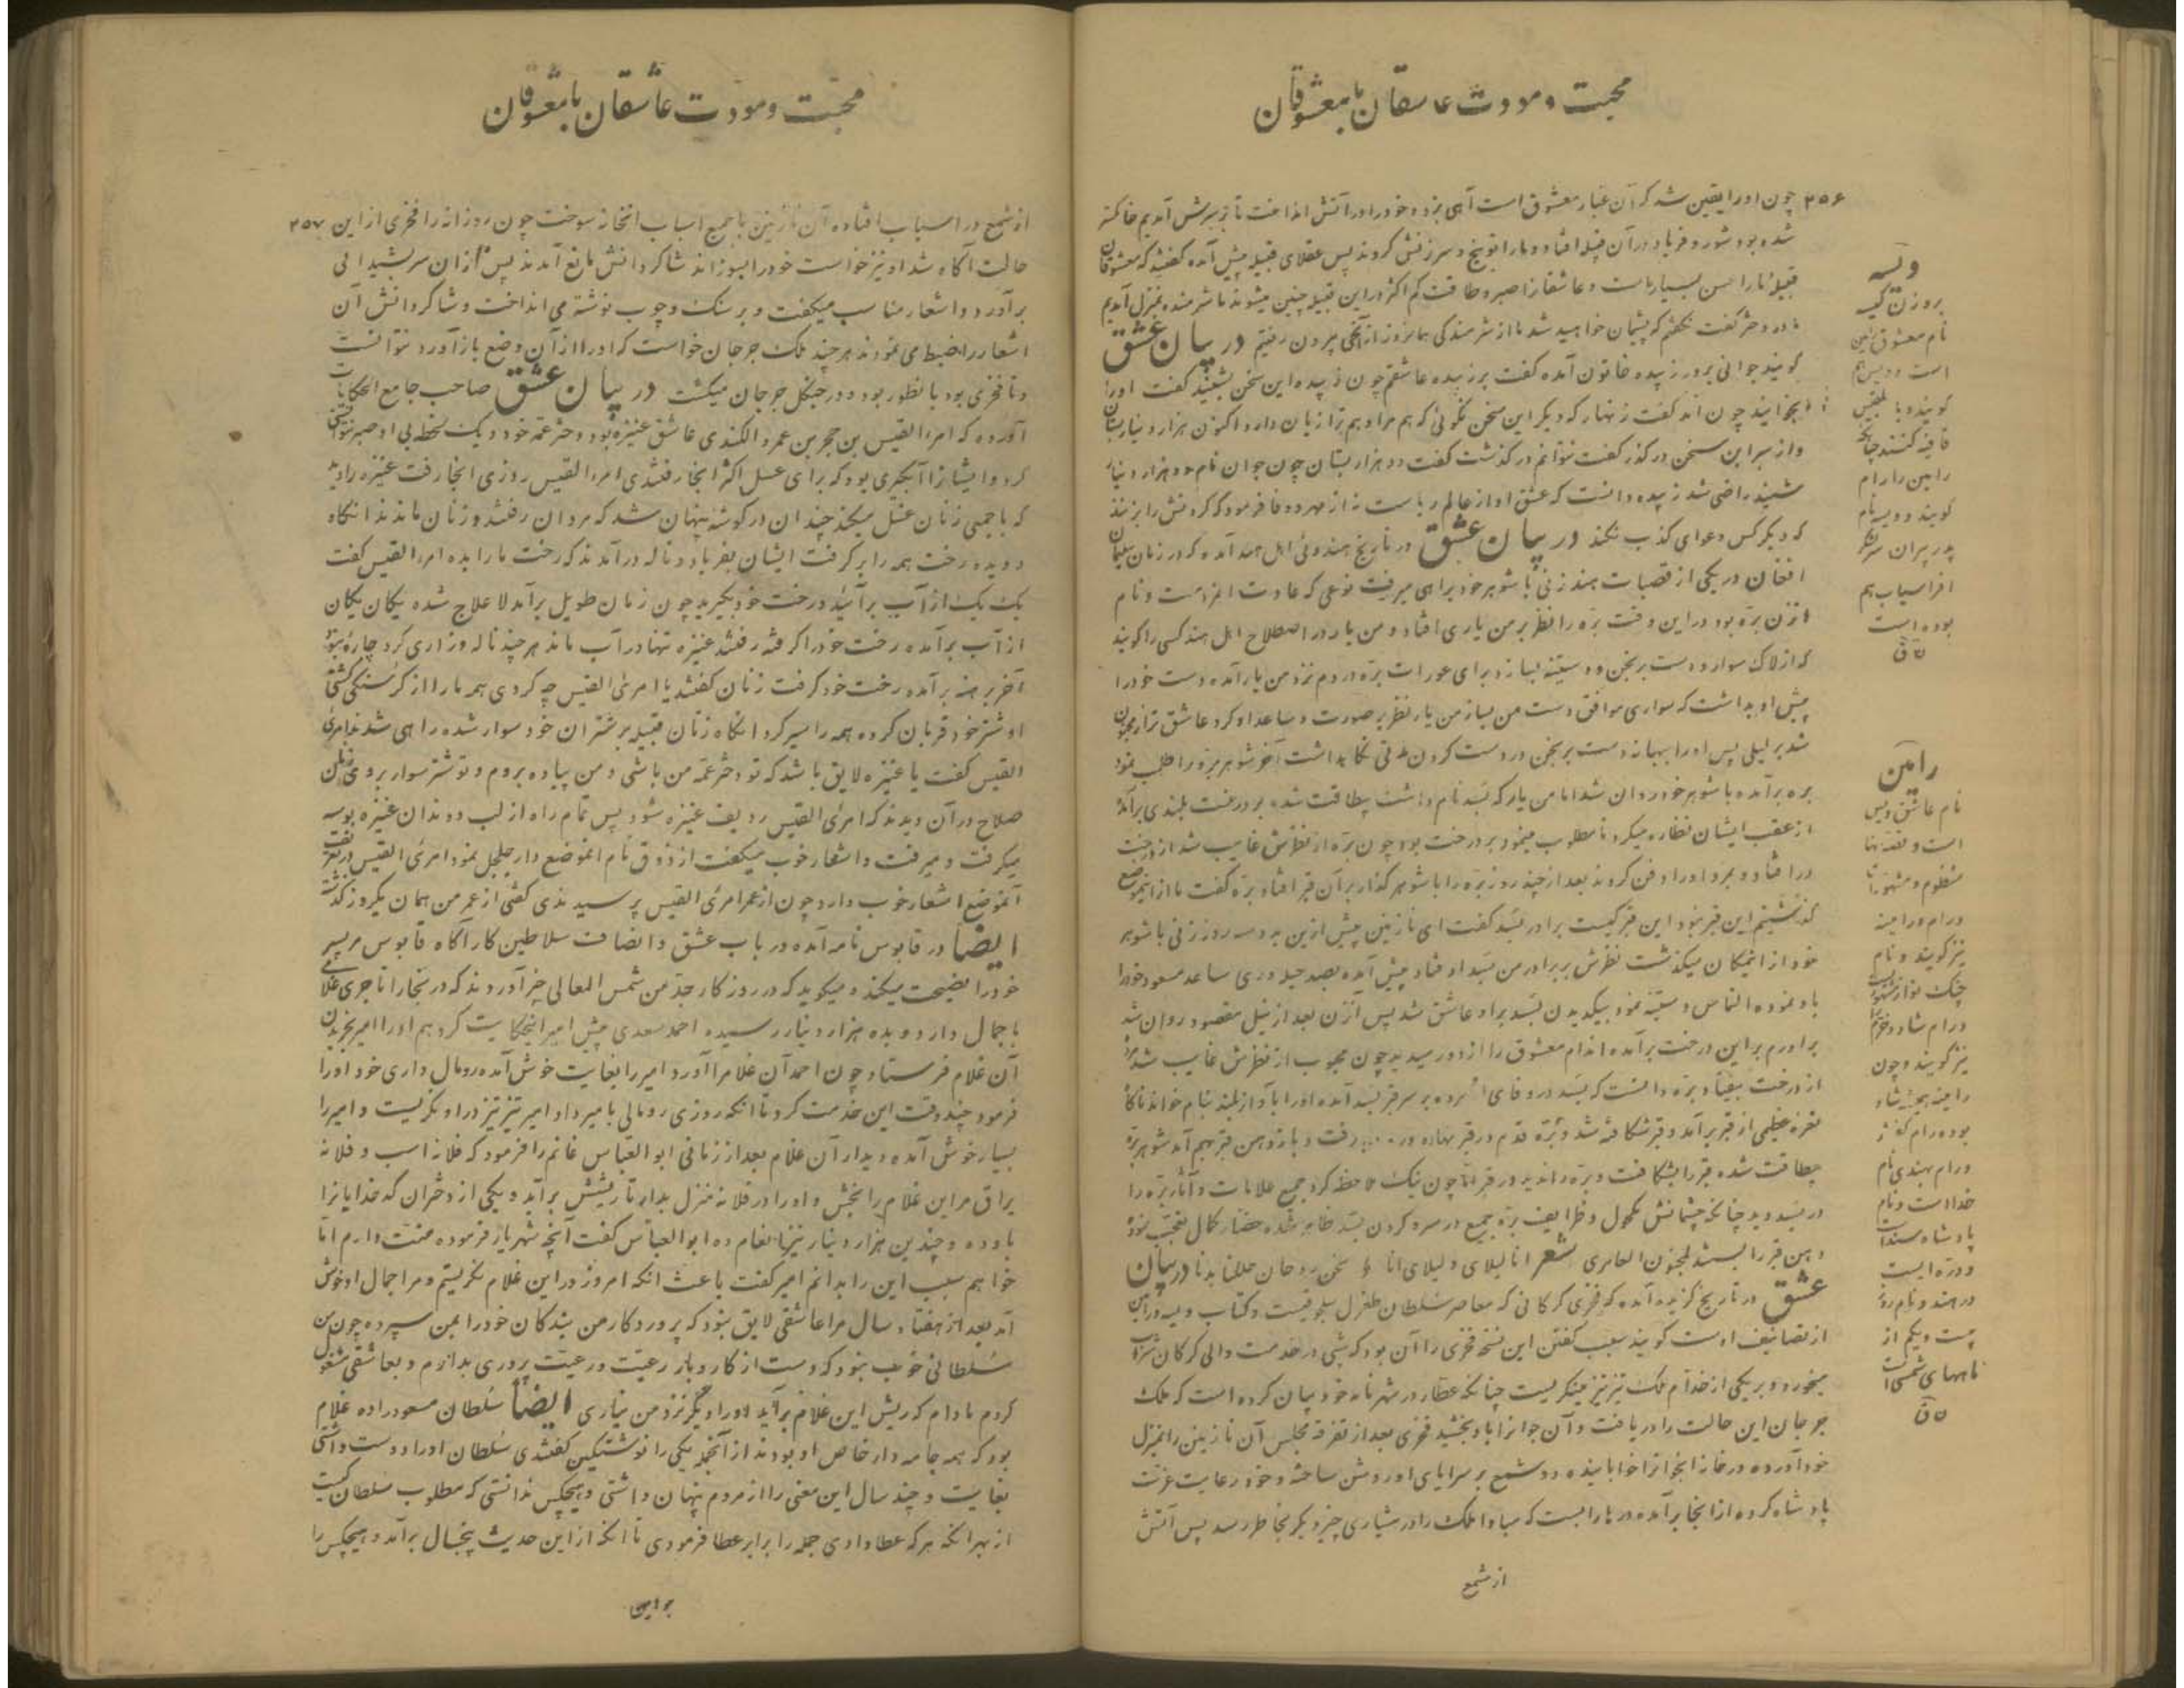 محبت و مودت عاشقان با معشوقان
۳۵۶ چون اورا یقین شد که آن غبار معشوق است آهی بزد و خودرا در آتش انداخت تا بر سرش آمدیم خاکستر
شده بود شور و فریاد در آن قبیله افتاد و مارا توبیخ و سرزنش کردند پس عقلای قبیله پیش آمده گفتند که معشوقان
قبیله مارا حسن بسیار است و عاشقانرا صبر و طاقت کم اکثر در این قبیله چنین میشوند ما شرمنده بمنزل آمدیم
مادر دختر گفت نگفتم که پشیمان خواهید شد ما از شرمندگی همانروز از آنجا بیرون رفتیم در بیان عشق
گویند جوانی بر در زبیده خاتون آمده گفت بر زبیده عاشقم چون زبیده این سخن بشنید گفت اورا
بخوانید چون آمد گفت زنهار که دیگر این سخن نگوئی که هم مرا و هم ترا زیان دارد اکنون هزار دینار بستان
و از سر این سخن در گذر گفت نتوانم در گذشت گفت دو هزار بستان چون جوان نام دو هزار دینار
شنید راضی شد زبیده دانست که عشق او از عالم ریاست نه از مهر و وفا فرمود که گردنش را بزنند
که دیگر کس دعوای کذب نکند در بیان عشق در تاریخ هندوئی اهل هند آمده که در زمان سلیمان
افغان در یکی از قصبات هند زنی با شوهر خود براهی میرفت نوعی که عادت اعزه است و نام
آنزن بزه بود در این وقت بزه را نظر بر من یاری افتاد و من یار در اصطلاح اهل هند کسی را گویند
که از لاک سوار و دست برنجن و دستینه بسازد برای عورات بزه در دم نزد من یار آمده دست خودرا
پیش او بداشت که سواری موافق دست من بساز من یار نظر بر صورت و ساعد او کرد عاشق تر از مجنون
شد بر لیلی پس اورا ببهانه دست برنجن در دست کردن مدتی نگاه داشت آخر شوهر بزه را طلب نمود
بزه برآمده با شوهر خود روان شد اما من یار که بسد نام داشت بیطاقت شده بر درخت بلندی برآمد
از عقب ایشان نظاره میکرد تا مطلوب مینمود بر درخت بود چون بزه از نظرش غایب شد از درخت
در افتاد و بمرد اورا دفن کردند بعد از چند روز بزه را با شوهر گذار بر آن قبر افتاد بزه گفت ما از اینموضع
گذشتیم این قبر نبود این قبر کیست برادر بسد گفت ای نازنین پیش ازین بدو سه روز زنی با شوهر
خود از اینمکان میگذشت نظرش بر برادر من بسد افتاد پیش آمده بصد حیله وری ساعد مسعود خودرا
باو نموده التماس دستینه نمود بیکدیدن بسد بر او عاشق شد پس آنزن بعد از نیل مقصود روان شد
برادرم بر این درخت برآمده اندام معشوق را از دور میدید چون محبوب از نظرش غایب شد
از درخت بیفتاد بزه دانست که بسد در وفای او مرده بر سر قبر بسد آمده اورا بآواز بلند بنام خواند ناگاه
نعره عظیمی از قبر برآمد و قبر شکافته شد و بزه قدم در قبر نهاده رفت و باز دهن قبر بهم آمد شوهر بزه
بیطاقت شده قبر را بشکافت و بزه را ندید در قبر اما چون نیک ملاحظه کرد جمیع علامات و آثار بزه را
در بسد دید چنانکه چشمانش مکحول و ظرایف بزه جمیع در سر و گردن بسد ظاهر شده حضار کمال تعجب نمود
دهن قبر را بستند لمجنون العامری شعر انا لیلای و لیلای انا نحن روحان حللنا بدنا در بیان
عشق در تاریخ گزیده آمده که فخری گرگانی که معاصر سلطان طغرل سلجوقیست و کتاب ویسه و رامین
از تصانیف اوست گویند سبب گفتن این نسخه فخری را آن بود که شبی در خدمت والی گرگان شراب
میخورد و بر یکی از خدام ملک تیز تیز مینگریست چنانکه عطار در شهرنامه خود بیان کرده است که ملک
جرجان این حالت را دریافت و آن جوانرا باو بخشید فخری بعد از تفرقه مجلس آن نازنین را بمنزل
خود آورده در خانه آنجوانرا خوابانیده دو شمع بر سر اپای او روشن ساخته و خود رعایت عزت
پادشاه کرده از آنجا برآمده در بارا بست که مبادا ملک را در هشیاری چیز دیگر بخاطر رسد پس آتش
از شمع
ویسه
بر وزن کیسه
نام معشوق رامین
است و ویس هم
گویند و با بلقیس
قافیه کنند چنانکه
رامین را رام
گویند و ویسه نام
پدر پیران سر لشکر
افراسیاب هم
بوده است
رامین
نام عاشق ویس
است و قصه آنها
منظوم و مشهور است
و رام و رامینه
نیز گویند و نام
چنگ نواز مشهور است
و رام شاد و خرم را
نیز گویند و چون
رامینه همیشه شاد
بوده رام گفتند
و رام بهندی نام
خدا است و نام
پادشاه سند است
و دره ایست
در هند و نام روز
بیست و یکم از
ماههای شمسی است
محبت و مودت عاشقان با معشوقان
از شمع در اسباب افتاده آن نازنین با جمیع اسباب آنخانه سوخت چون روز آنه را فخری از این ۳۵۷
حالت آگاه شد او نیز خواست خودرا بسوزاند شاگردانش مانع آمدند پس از آن سر بشیدائی
برآورد و اشعار مناسب میگفت و بر سنگ و چوب نوشته می انداخت و شاگردانش آن
اشعار را ضبط می نمودند هر چند ملک جرجان خواست که اورا از آن وضع باز آورد نتوانست
و تا فخری بود بانطور بود و در جنگل جرجان میگشت در بیان عشق صاحب جامع الحکایات
آورده که امرء القیس بن حجر بن عمرو الکندی عاشق عنیزه بود دختر عمه خود و یک لحظه بی او صبر نتوانستی
کرد و ایشانرا آبگیری بود که برای غسل اکثر آنجا رفتندی امرء القیس روزی آنجا رفت عنیزه را دید
که با جمعی زنان غسل میکند چندان در گوشه پنهان شد که مردان رفتند و زنان ماندند آنگاه
دویده رخت همه را برگرفت ایشان بفریاد و ناله درآمدند که رخت مارا بده امرء القیس گفت
یک یک از آب برآئید و رخت خود بگیرید چون زمان طویل برآمد لاعلاج شده یکان یکان
از آب برآمده رخت خودرا گرفته رفتند عنیزه تنها در آب ماند هر چند ناله و زاری کرد چاره نبود
آخر برهنه برآمد رخت خود گرفت زنان گفتند یا امرئ القیس چه کردی همه مارا از گرسنگی کشتی
او شتر خود قربان کرده همه را سیر کرد آنگاه زنان قبیله بر شتران خود سوار شده راهی شدند امرئ
القیس گفت یا عنیزه لایق باشد که تو دختر عمه من باشی و من پیاده بروم و تو شتر سوار بروی زنان
صلاح در آن دیدند که امرئ القیس ردیف عنیزه شود پس تمام راه از لب و دندان عنیزه بوسه
میگرفت و میرفت و اشعار خوب میگفت از ذوق نام آنموضع دار جلجل بود امرئ القیس در تعریف
آنموضع اشعار خوب دارد چون از عمر امرئ القیس پرسیدندی گفتی از عمر من همان یکروز گذشته
ایضاً در قابوس نامه آمده در باب عشق و انصاف سلاطین کارآگاه قابوس مر پسر
خودرا نصیحت میکند و میگوید که در روزگار جد من شمس المعالی خبر آوردند که در بخارا تاجری غلامی
باجمال دارد و بده هزار دینار رسیده احمد سعدی پیش امیر اینحکایت کرد هم اورا امیر بخریدن
آن غلام فرستاد و چون احمد آن غلامرا آورد امیر را بغایت خوش آمده رومال داری خود اورا
فرمود چند وقت این خدمت کرد تا آنکه روزی رومالی بامیر داد امیر تیز تیز در او نگریست و امیر را
بسیار خوش آمده دیدار آن غلام بعد از زمانی ابو العباس غانم را فرمود که فلانه اسب و فلانه
یراق مر این غلام را بخش و اورا در فلانه منزل بدار تا ریشش برآید و یکی از دختران کدخدایانرا
باو ده و چندین هزار دینار نیز بانعام ده ابو العباس گفت آنچه شهریار فرموده منت دارم اما
خواهم سبب این را بدانم امیر گفت باعث آنکه امروز در این غلام نگریستم و مرا جمال او خوش
آمد بعد از هفتاد سال مرا عاشقی لایق نبود که پروردگار من بندگان خودرا بمن سپرده چون من
سلطانی خوب نبود که دست از کار و بار رعیت و رعیت پروری بدارم و بعاشقی مشغول
گردم مادام که ریش این غلام برآید اورا دیگر نزد من نیاری ایضاً سلطان مسعود را ده غلام
بود که همه جامه دار خاص او بودند از آنجمله یکی را نوشتکین گفتندی سلطان اورا دوست داشتی
بغایت و چند سال این معنی را از مردم پنهان داشتی و هیچکس ندانستی که مطلوب سلطان کیست
از بهر آنکه هر که عطا دادی جمله را برابر عطا فرمودی تا آنکه از این حدیث پنجسال برآمد و هیچکس را